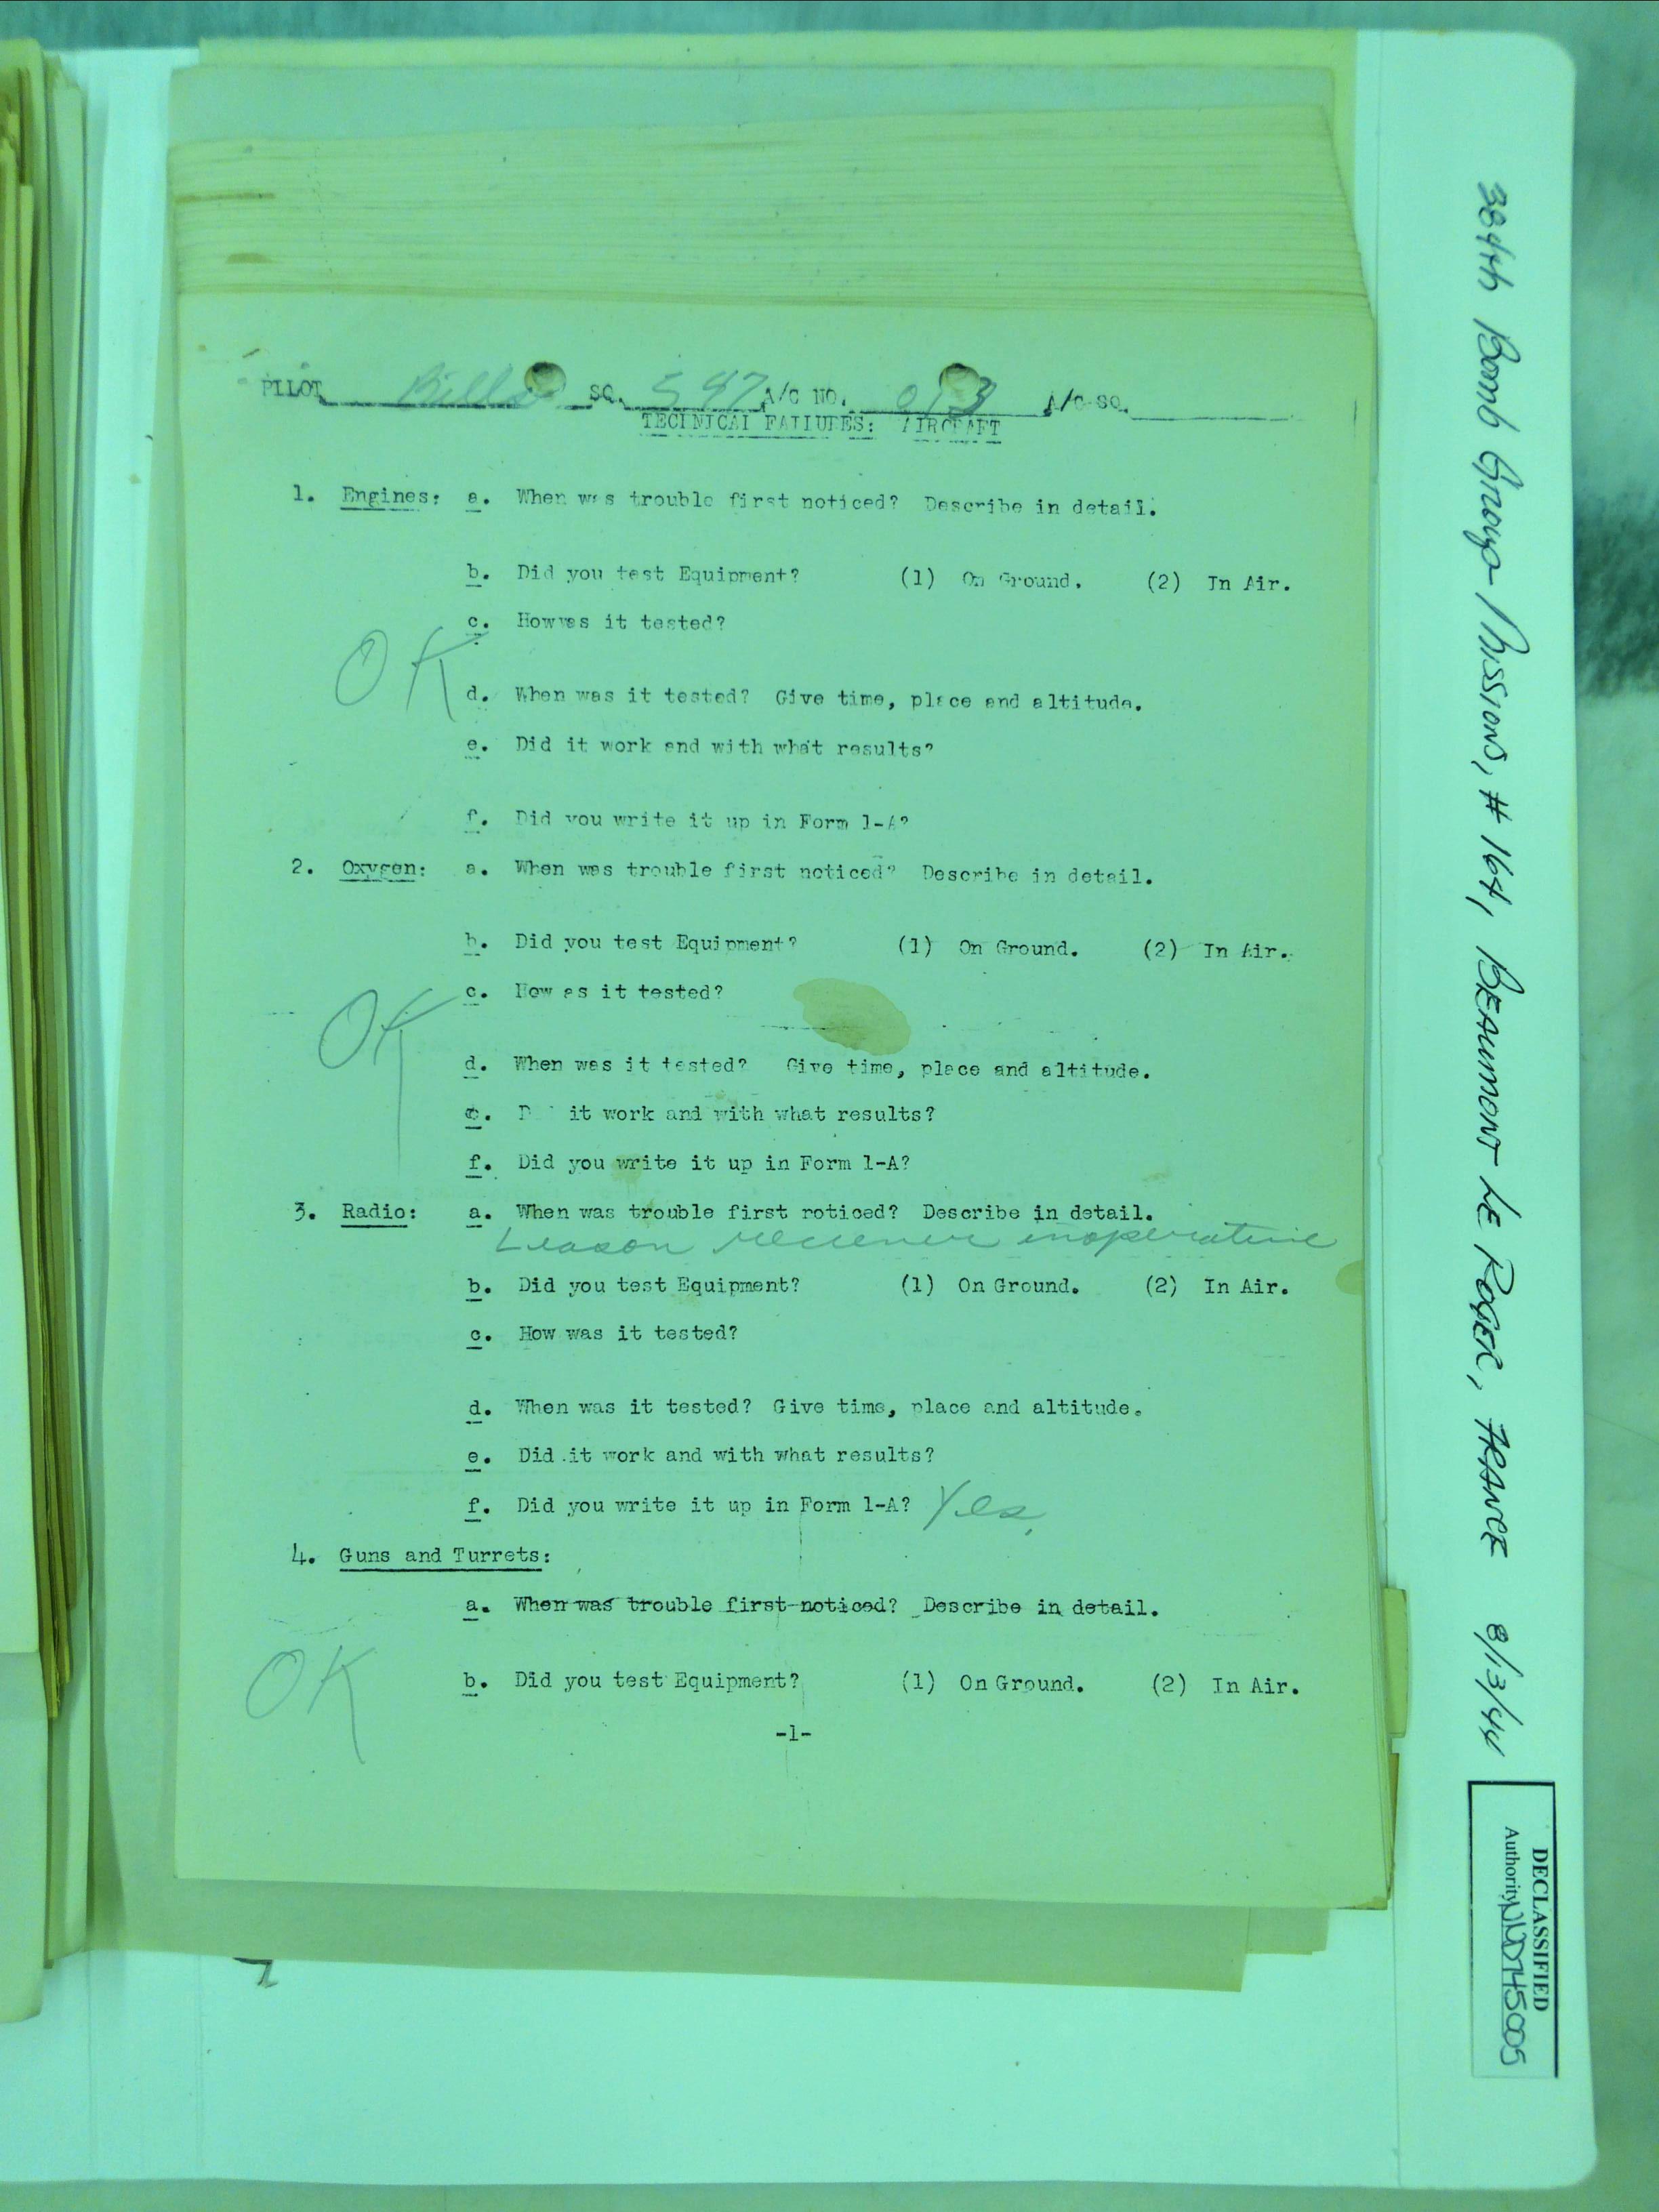 PILOT Bills SQ. 547 A/C NO. 013 A/C SQ.
TECHNICAL FAILURES: AIRCRAFT
1. Engines: a. When was trouble first noticed? Describe in detail.
b. Did you test Equipment? (1) On Ground. (2) In Air.
c. How was it tested?
OK
d. When was it tested? Give time, place and altitude.
e. Did it work and with what results?
f. Did you write it up in Form 1-A?
2. Oxygen: a. When was trouble first noticed? Describe in detail.
b. Did you test Equipment? (1) On Ground. (2) In Air.
c. How as it tested?
OK
d. When was it tested? Give time, place and altitude.
e. D it work and with what results?
f. Did you write it up in Form 1-A?
3. Radio: a. When was trouble first noticed? Describe in detail.
Leason reciever inoperative
b. Did you test Equipment? (1) On Ground. (2) In Air.
c. How was it tested?
d. When was it tested? Give time, place and altitude.
e. Did it work and with what results?
f. Did you write it up in Form 1-A? Yes.
4. Guns and Turrets:
a. When was trouble first noticed? Describe in detail.
OK
b. Did you test Equipment? (1) On Ground. (2) In Air.
-1-
384th Bomb Group - Mission, # 164, BEAUMONT LE ROGER, FRANCE 8/13/44
DECLASSIFIED
Authority NND745005